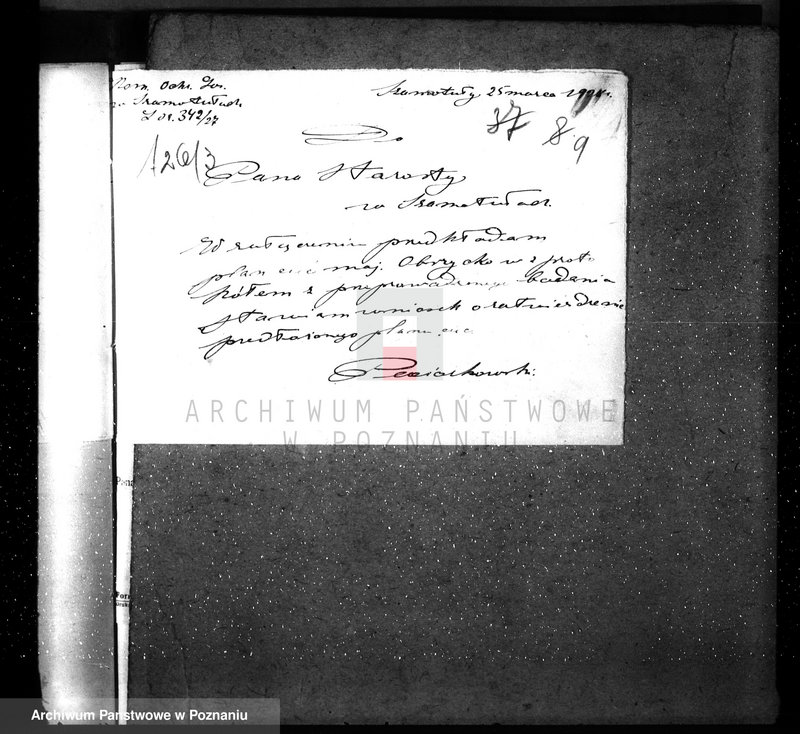 Kom. Ochr. Las.
w Szamotułach
L. dz. 342/27
Szamotuły 25 marca
37 8 9
Pana Starosty
w Szamotułach.
W załączeniu przedkładam
plan maj. Obrzycko w z proto
kółem z przeprowadzonego badania
stawiam wniosek o zatwierdzenie
przedłożonego planu
ARCHIWUM PAŃSTWOWE
W POZNANIU
Archiwum Państwowe w Poznaniu